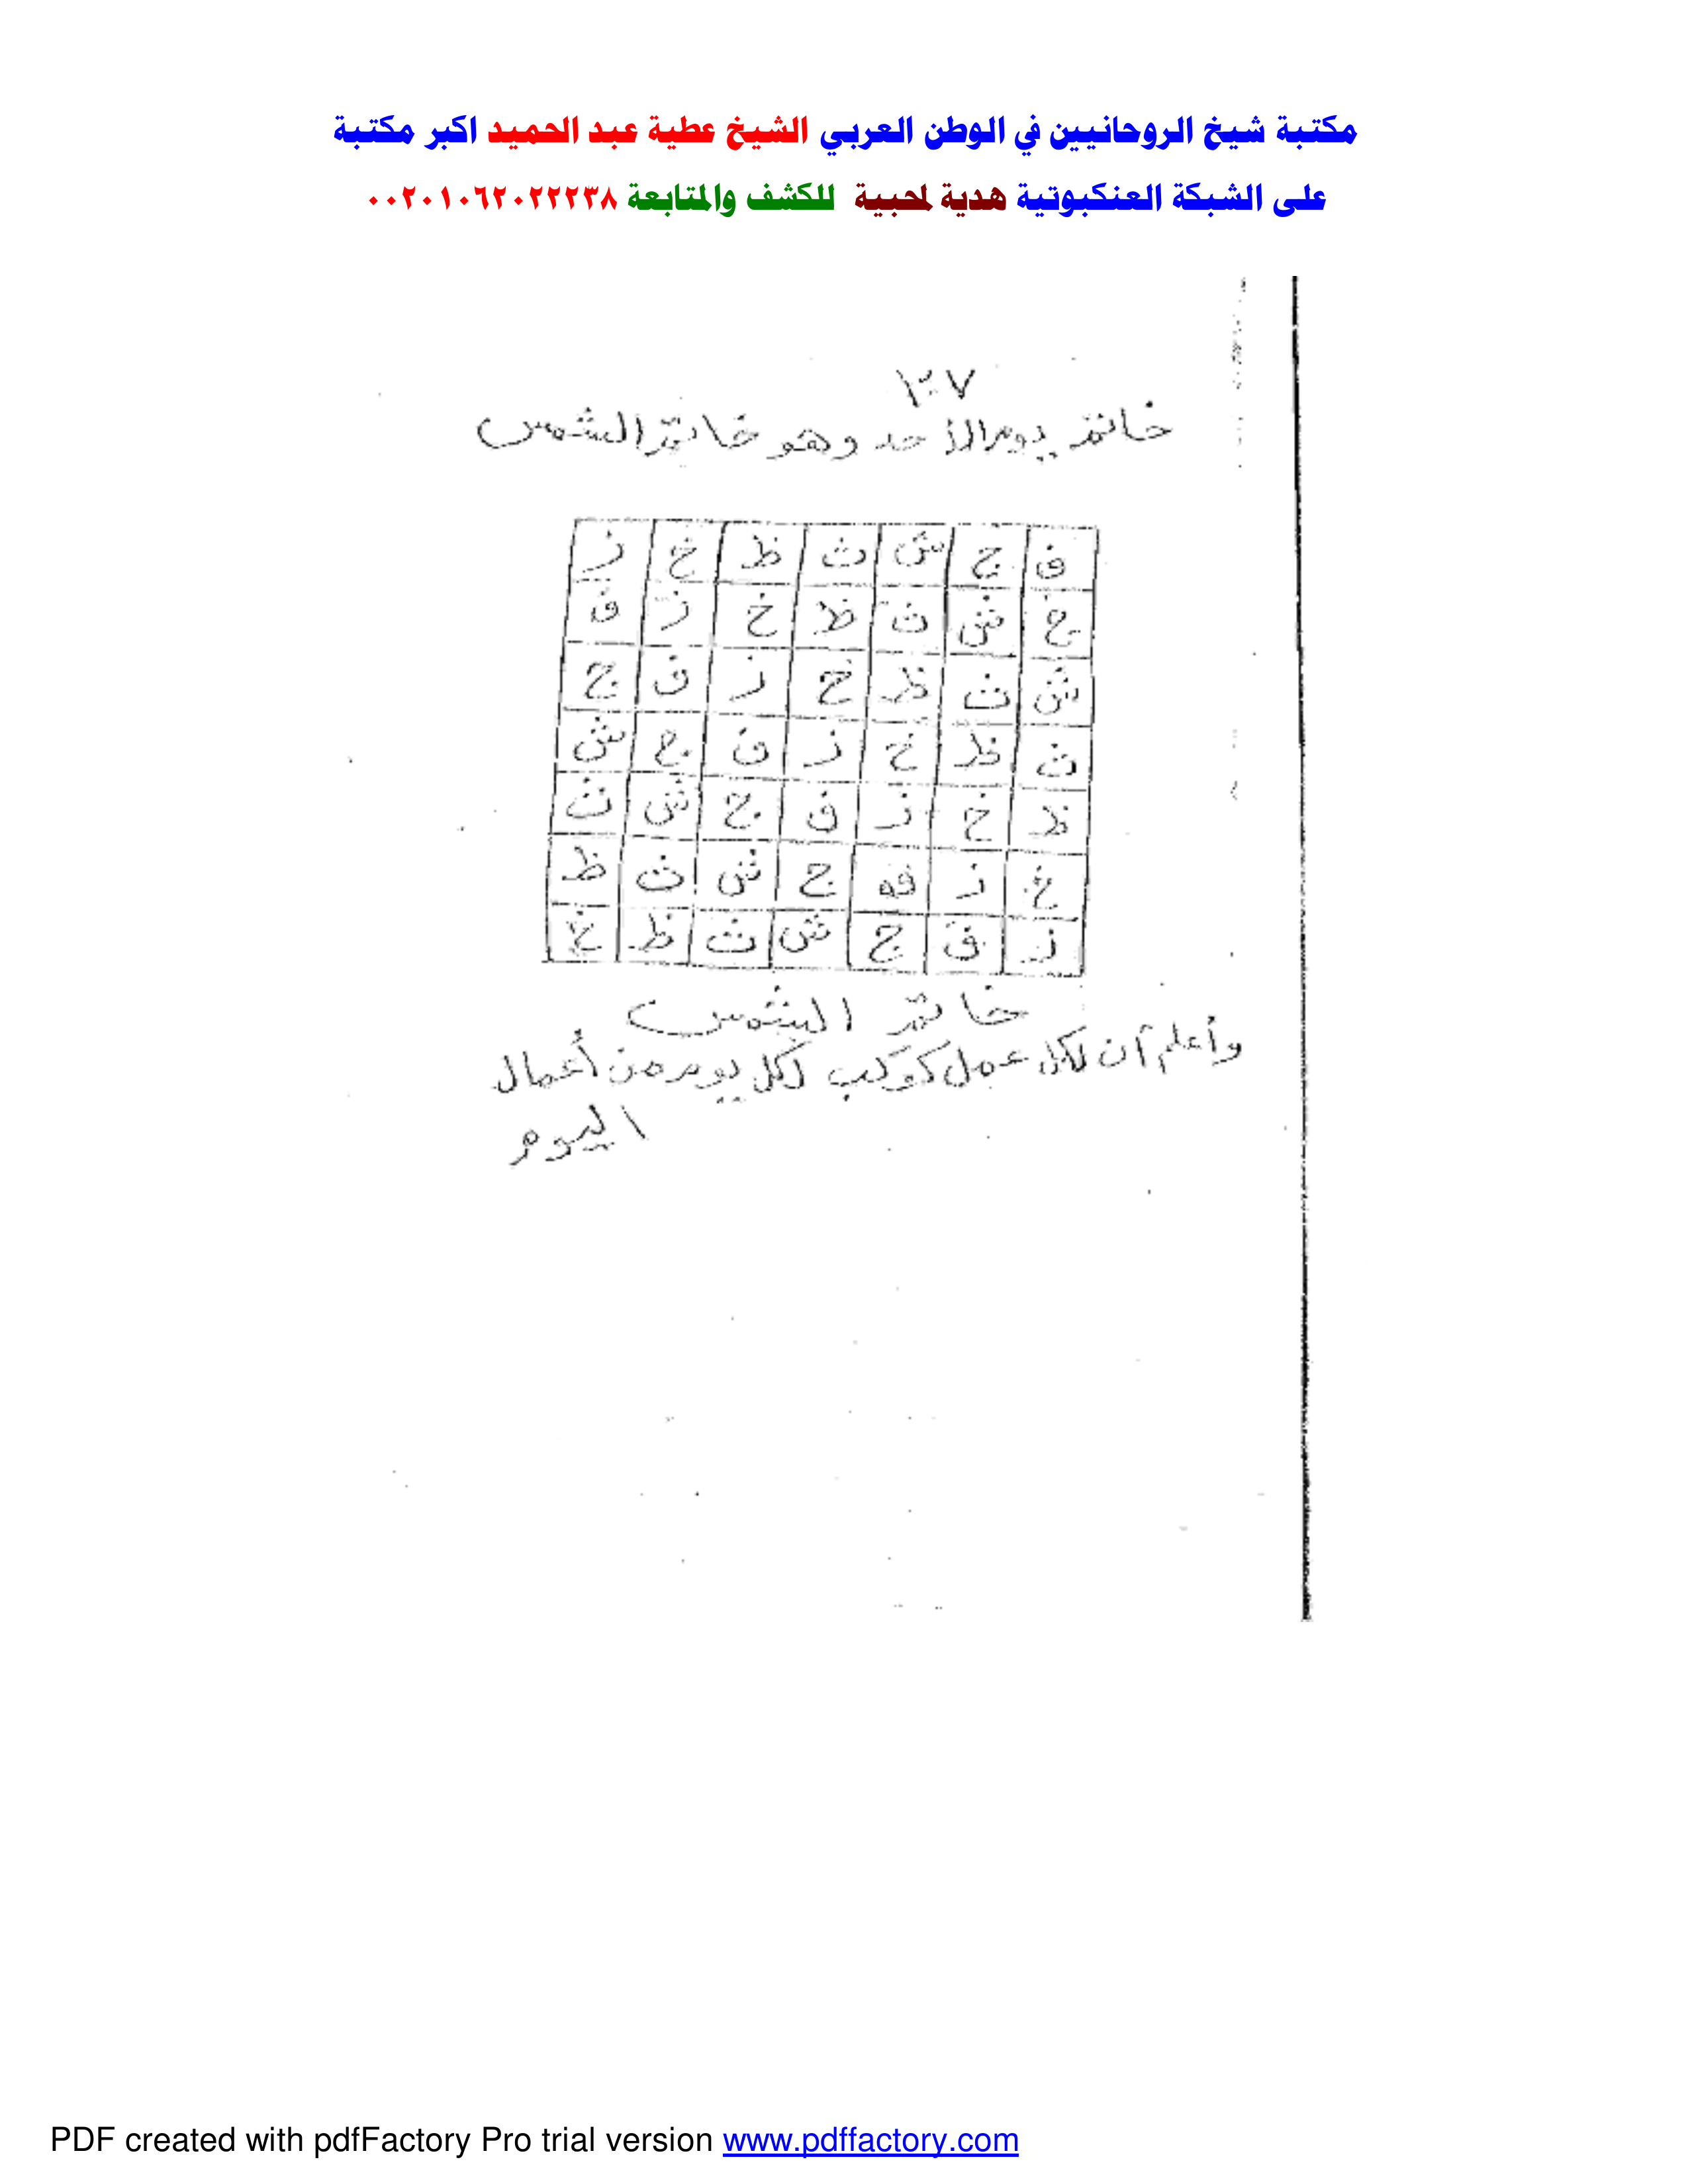 مكتبة شيخ الروحانيين في الوطن العربي الشيخ عطية عبد الحميد اكبر مكتبة
على الشبكة العنكبوتية هدية لمحبية للكشف والمتابعة ٠٠٢٠١٠٦٢٠٢٢٢٣٨
خاتم يوم الأحد وهو خاتم الشمس
ف ج ش ث ظ خ ز
ج ش ث ظ خ ز ف
ش ث ظ خ ز ف ج
ث ظ خ ز ف ج ش
ظ خ ز ف ج ش ث
خ ز ف ج ش ث ظ
ز ف ج ش ث ظ خ
خاتم الشمس
وأعلم أن لكل عمل كوكب لكل يوم من أعمال
اليوم
PDF created with pdfFactory Pro trial version www.pdffactory.com